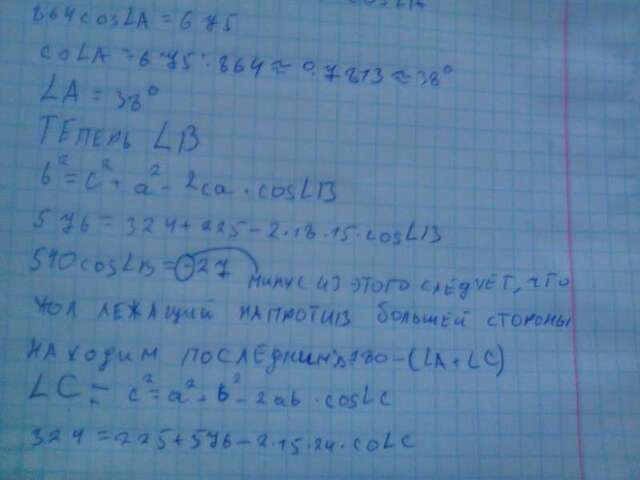 864cosLA = 675
coLA = 675:864 ≈ 0.7813 ≈ 38°
LA = 38°
ТЕПЕРЬ LB
b² = c² + a² - 2ca · cosLB
576 = 324 + 225 - 2·18·15·cosLB
540cosLB = -27
МИНУС ИЗ ЭТОГО СЛЕДУЕТ, ЧТО
УОЛ ЛЕЖАЩИЙ НАПРОТИВ БОЛЬШЕЙ СТОРОНЫ
НАХОДИМ ПОСЛЕДНИМ 180-(LA+LC)
LC = c² = a² + b² - 2ab · cosLC
324 = 225 + 576 - 2·15·24·coLC